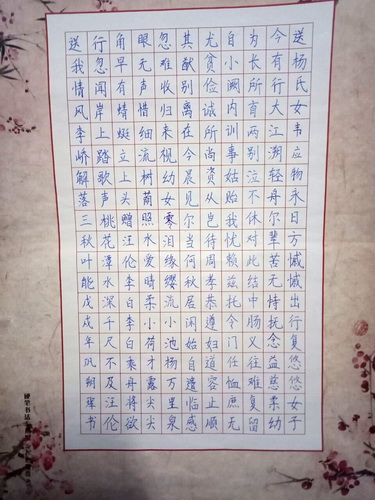 送杨氏女韦应物永日方慽慽出行复悠悠女子
今有行大江溯轻舟尔辈苦无恃抚念益慈柔幼
为长所育两别泣不休对此结中肠义往难复留
自小阙内训事姑贻我忧赖兹托令门仕恤庶无
尤贫俭诚所尚资从岂待周孝恭遵妇道容止顺
其猷别离在今晨见尔当何秋居闲始自遣临感
忽难收归来视幼女零泪缘缨流小池杨万里泉
眼无声惜细流树荫照水爱晴柔小荷才露尖尖
角早有蜻蜓立上头赠汪伦李白李白乘舟将欲
行忽闻岸上踏歌声桃花潭水深千尺不及汪伦
送我情风李峤解落三秋叶能戊戌年巩朔珲书